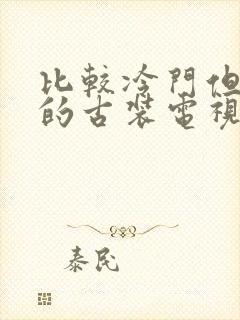 比較冷門但
的古裝電視
泰民